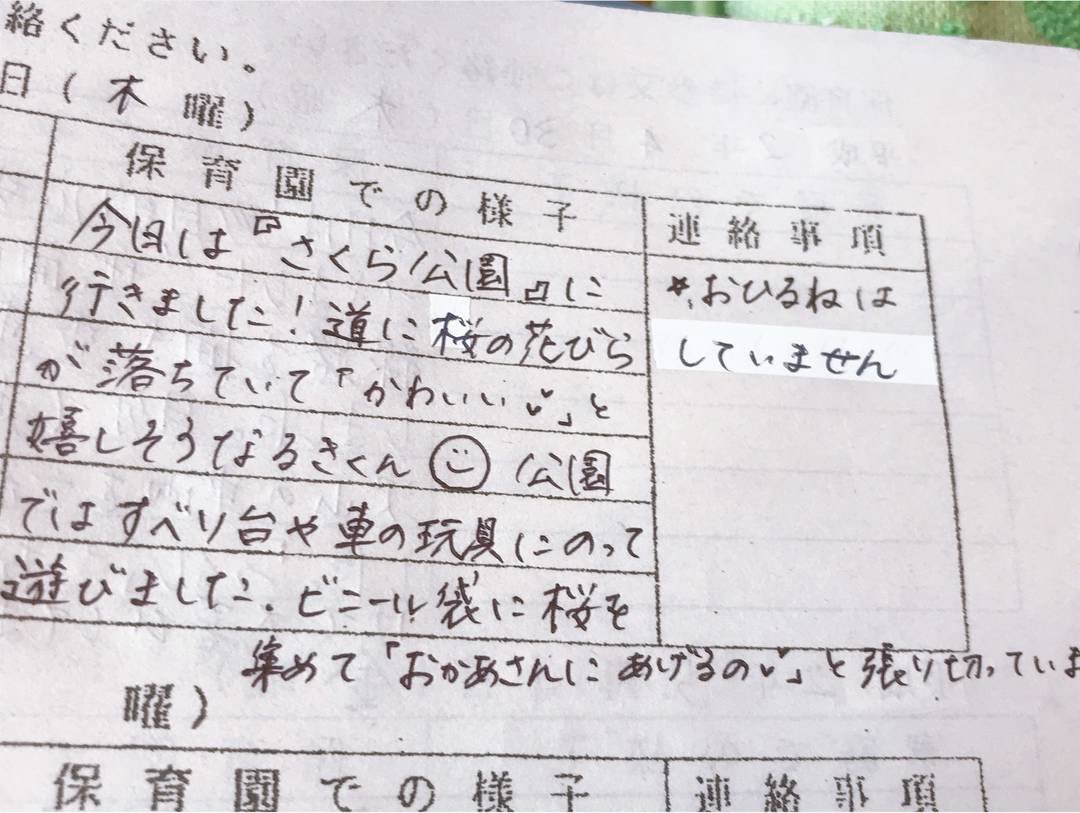 絡ください。
日(木 曜)
保育園での様子
連絡事項
今日は『さくら公園』に
行きました!道に桜の花びら
が落ちていて「かわいい♡」と
嬉しそうなるきくん☺ 公園
ではすべり台や車の玩具にのって
遊びました。ビニール袋に桜を
集めて「おかあさんにあげるの♡」と張り切っていま
*おひるねは
していません
曜)
保育園での様子
連絡事項